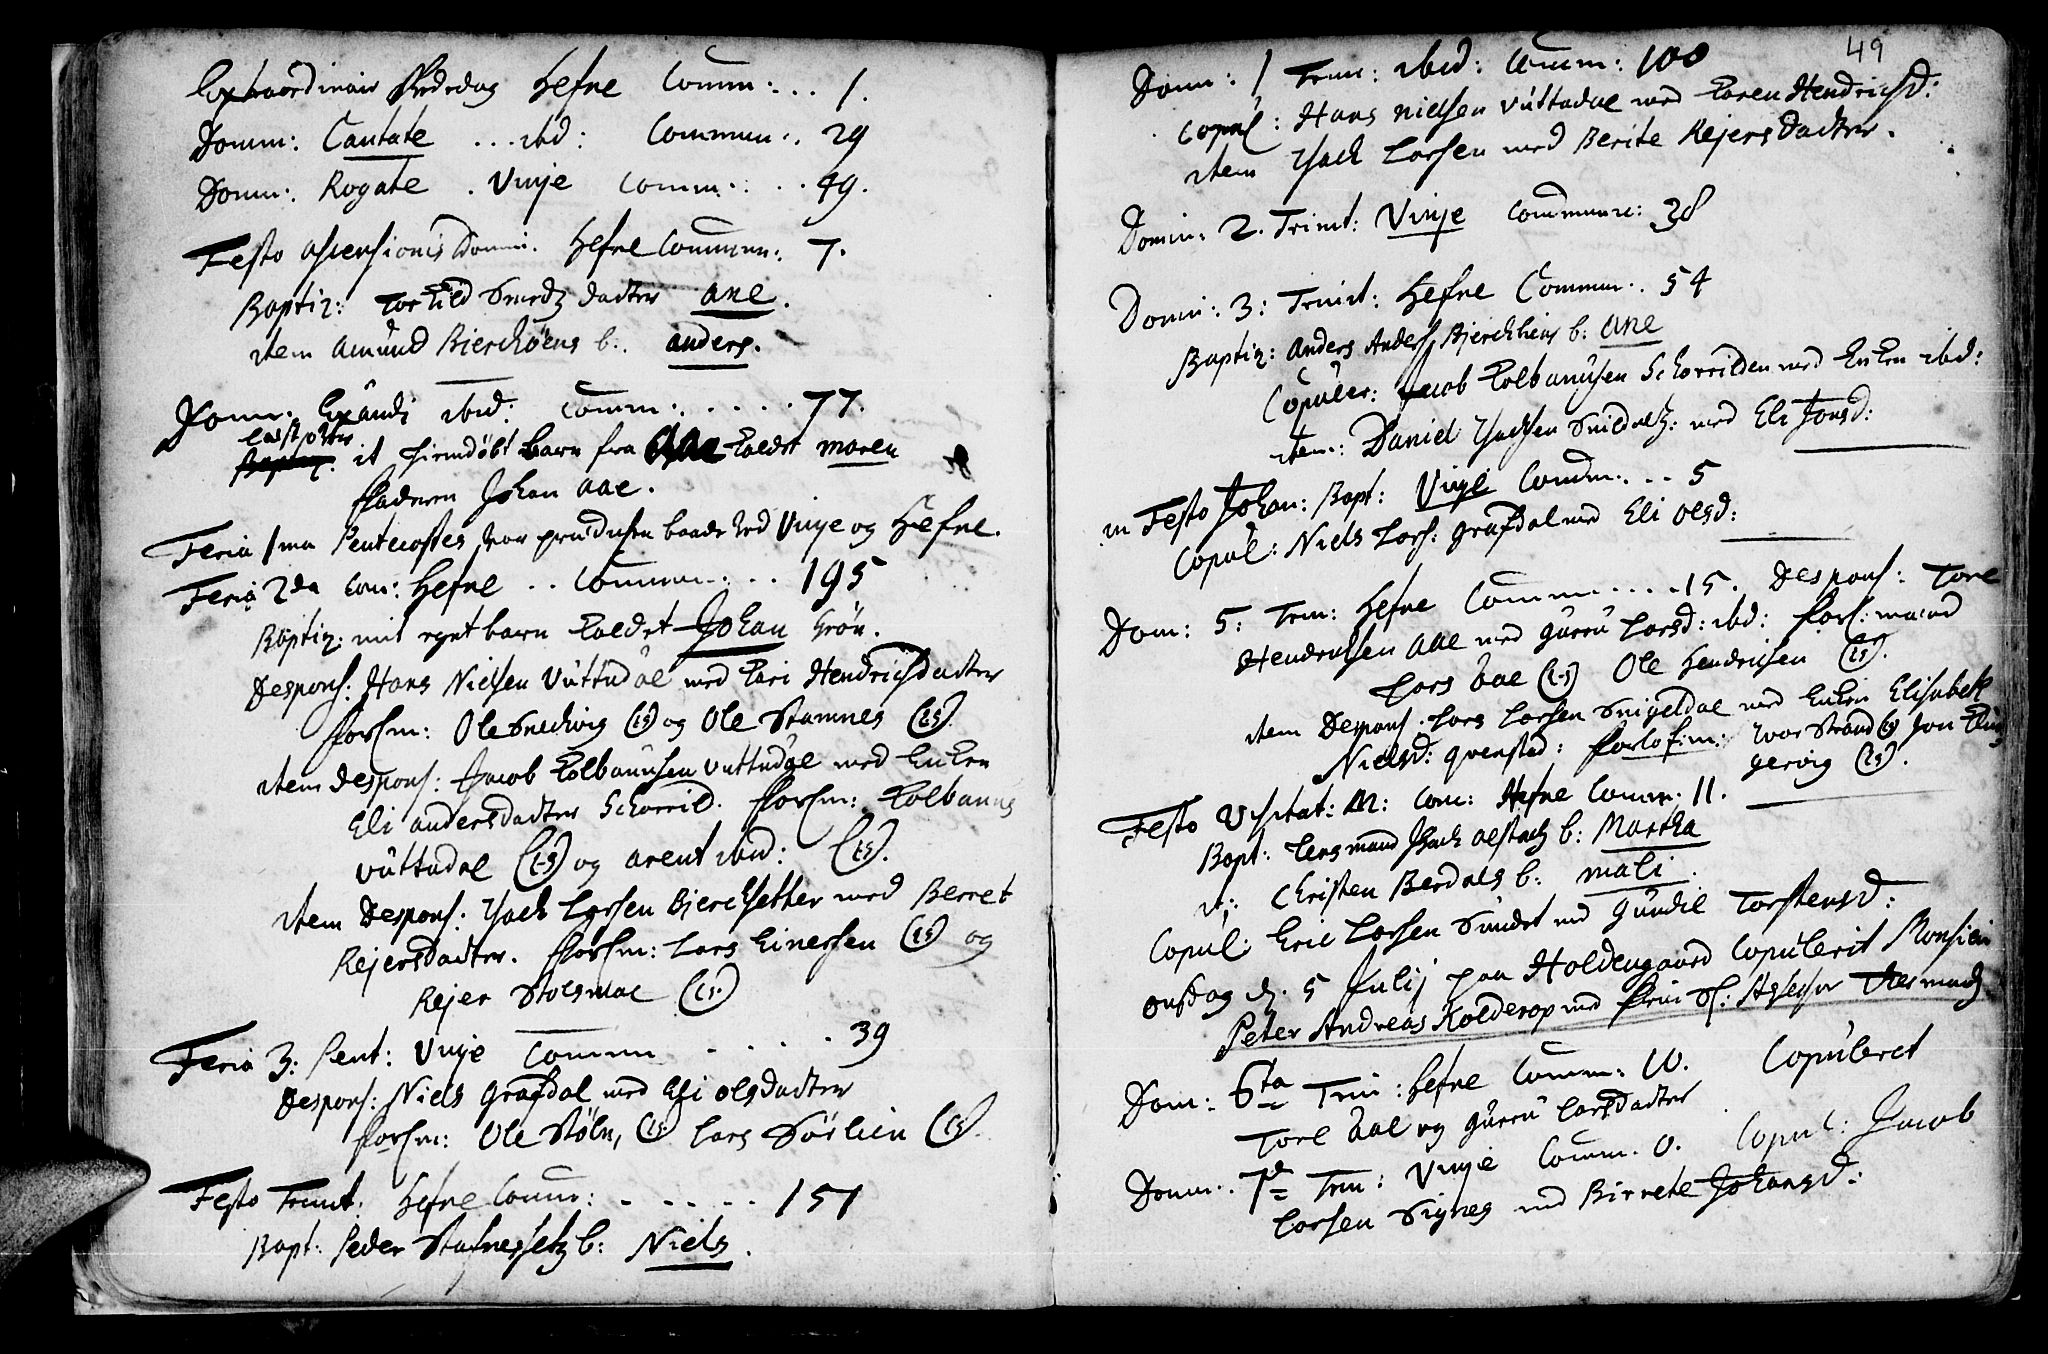 Extraordinair Bededag Hefne Comm: . . . 1.
Domm: Cantate . . . ibid: Commun: . 29
Domm: Rogate . Vinje Comm: . . . 49.
Festo ascensionis Domini. Hefne Commun: 7.
Baptiz: Torkild Smedz dadter ane.
item Amund Bierchöens b: anders.
Domm: Exaudi ibid: Comm: . . . . . 77.
Baptiz. it hiemdöbt barn fra Aae kaldet maren
fadren Johan Aae.
Feria 1ma Pentecostes var prædichen baade ved Vinje og Hefne.
Feria 2da Com: Hefne . . Commun: . . 195
Baptiz: mit eget barn kaldet Johan Grön.
Despons: Hans Nielsen Vuttudal med Kari Hendrichsdadter
forlm: Ole Snedvig (LS) og Ole Stamnes (LS).
item despons: Jacob Kolbanusen Vuttudal med Enken
Eli andersdadter Schorrild. forlm: Kolbanus
Vuttudal (LS) og arent ibid: (LS).
item Despons: Isach Larsen Bierchsetter med Berret
Rejersdadter. forlm: Lars Einersen (LS) og
Rejer Stolsmoe (LS)
Feria 3: Pent: Vinje Commun . . . . . 39
Despons: Niels Grafdal med Eli olsdadter
forlm: Ole Stöln, (LS) Lars Sörlien (LS).
Festo Trinit: Hefne Comm: . . . . . . 151
Bapt: Peder Stafnessetz b: Niels.
49
Domm: 1 Trin: ibid: Comm: 100
Copul: Hans Nielsen Vuttudal med Karen Hendrichsd:
item Isach Larsen med Berite Rejersdadter.
Domin: 2. Trinit: Vinje Commun: 38
Domin: 3: Trinit: Hefne Commun: 54
Baptiz: Anders Anders: Bierchliens b: Ane
Copuler: Jacob Kolbanusen Schorrilden med Enken ibid:
item: Daniel Isachsen Snildals: med Eli Jonsd:
in Festo Johan: Bapt: Vinje Comm: . . . 5
Copul: Niels Lars: Grafdal med Eli Olsd:
Dom: 5: Trin: Hefne Commun . . . . 15. Despons: Tore
Hendrichsen Aae med Guru Larsd: ibd: forl: mænd
Lars Aae (LS) Ole Hendrichsen (LS).
item Despons. Lars Larsen Snigeldal med Enken Elisabet
Nielsd: Qvenstad: forlofm: Ivar Strand (LS) Jon
gervig (LS).
Festo Visitat: M: Com: Hefne Comm: 11.
Bapt: Lensmand Isach Aelstads b: Martha
it: Christen Berdals b: mali.
Copul: Eric Larsen Sundet med Gundil Torstensd:
Onsdag d. 5 Julij paa Holdengaard Copulerit Monsieur
Peter Andreas Kolderop med
Dom: 6ta Trin: Hefne Comm: 10. Copuleret
Tore Aae og Guru Larsdadter
Domm: 7de Trin: Vinje Comm. 0. Copul: Jacob
Larsen Signes med Birrete Johansd: